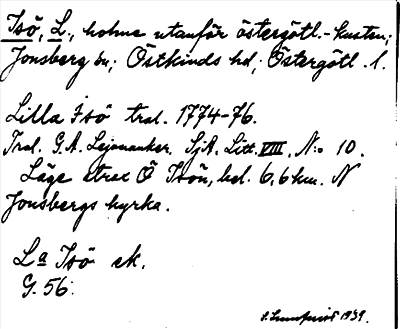 Isö, L., holme utanför östergötl.-kusten;
Jonsberg sn; Östkinds hd; Östergötl. l.
Lilla Isö trol. 1774-76.
Trol. G.A. Lejonanker. SjA. Litt. VIII. N:o 10.
Läge strax Ö Isön, bel. 6,6 km. N
Jonsbergs kyrka.
La Isö ek.
G. 56.
1939.